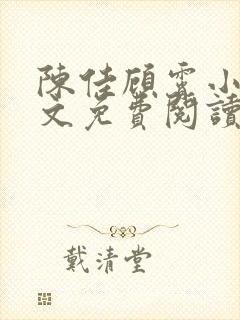 陳佳顧霆小
文免費閱讀
戴清堂